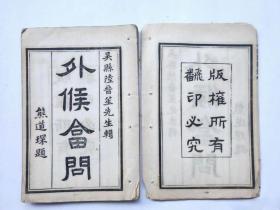 吳縣陸晉笙先生輯
外候畣問
熊道琛題
版權所有
翻印必究